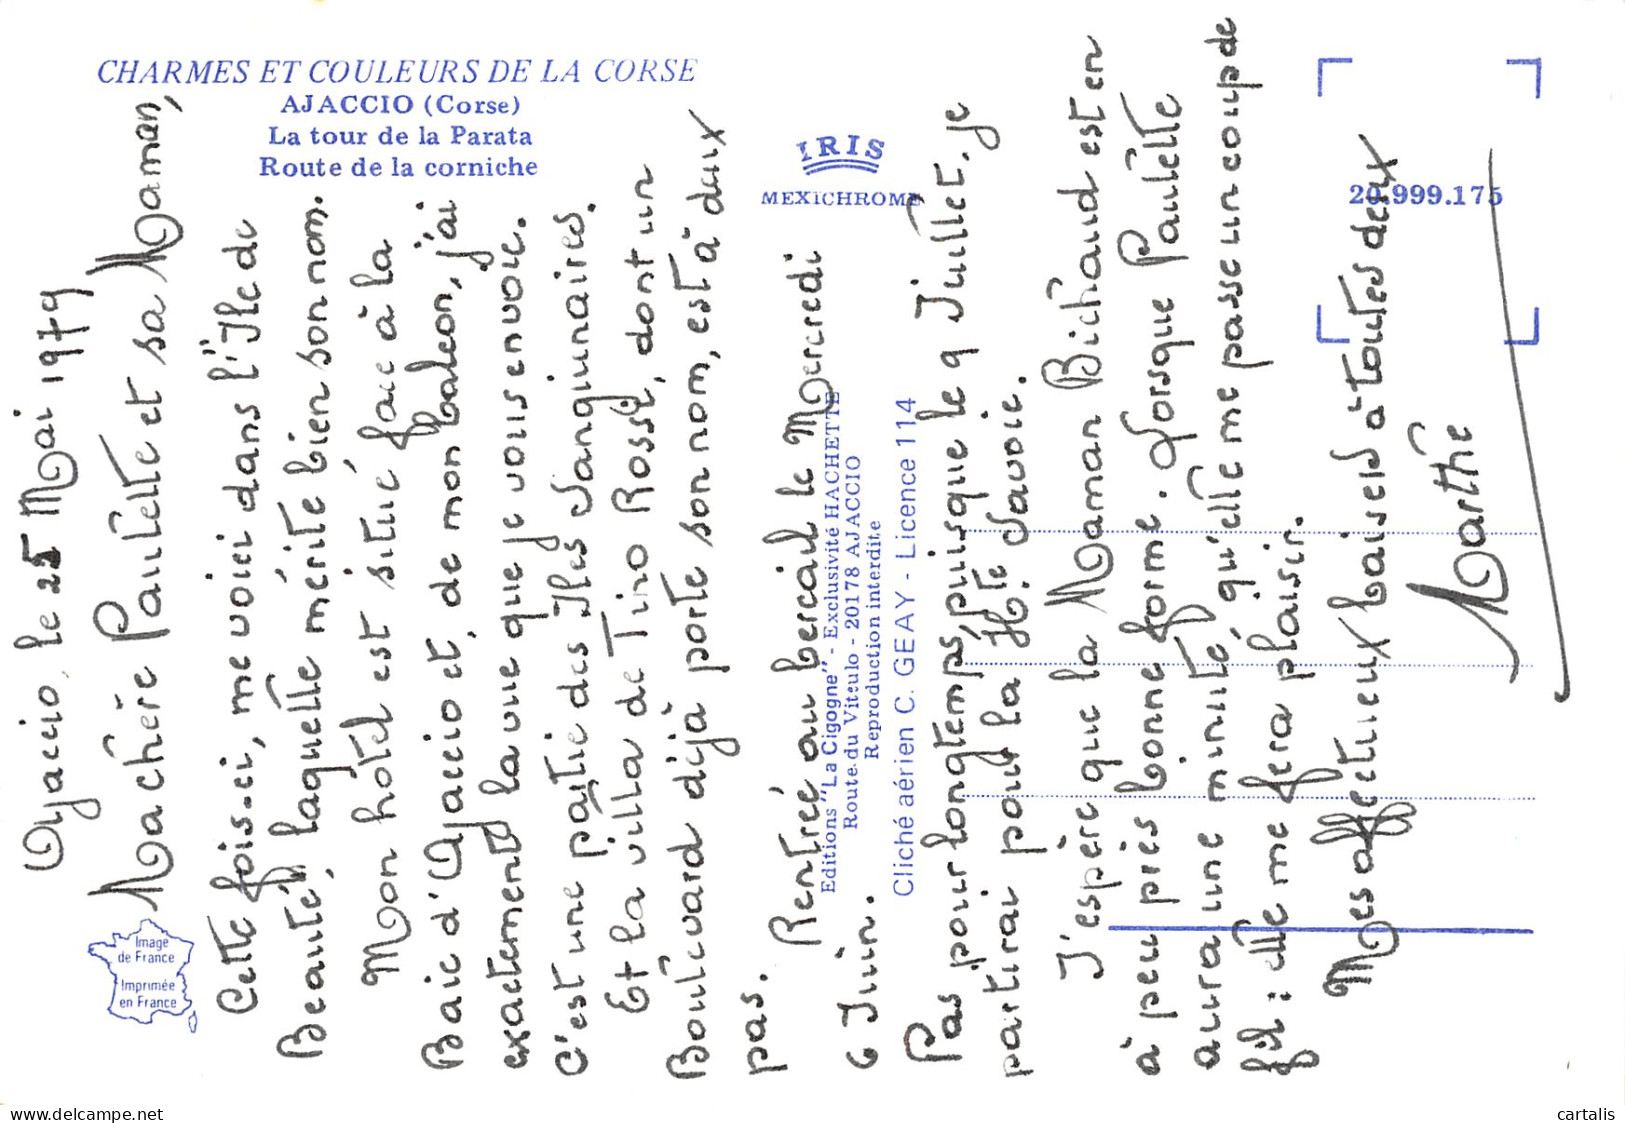 CHARMES ET COULEURS DE LA CORSE
AJACCIO (Corse)
La tour de la Parata
Route de la corniche
IRIS
MEXICHROME
20.999.175
Image
de France
Imprimée
en France
Editions "La Cigogne" - Exclusivité HACHETTE
Route du Vittulo - 20178 AJACCIO
Reproduction interdite
Cliché aérien C. GEAY - Licence 114
Ajaccio, le 25 Mai 1979
Ma chère Paulette et sa Maman,
Cette fois-ci, me voici dans l'"Ile de
Beauté", laquelle mérite bien son nom.
Mon hôtel est situé face à la
Baie d'Ajaccio et, de mon balcon, j'ai
exactement la vue que je vous envoie.
C'est une partie des Iles Sanguinaires.
Et la villa de Tino Rossi, dont un
Boulevard déjà porte son nom, est à deux
pas.
Rentrée au bercail le Mercredi
6 Juin.
Pas pour longtemps, puisque le 9 Juillet, je
partirai pour la Hte Savoie.
J'espère que la Maman Bichaud est en
à peu près bonne forme. Lorsque Paulette
aura une minute, qu'elle me passe un coup de
fil : elle me fera plaisir.
Mes affectueux baisers à toutes deux
Marthe
www.delcampe.net
cartalis